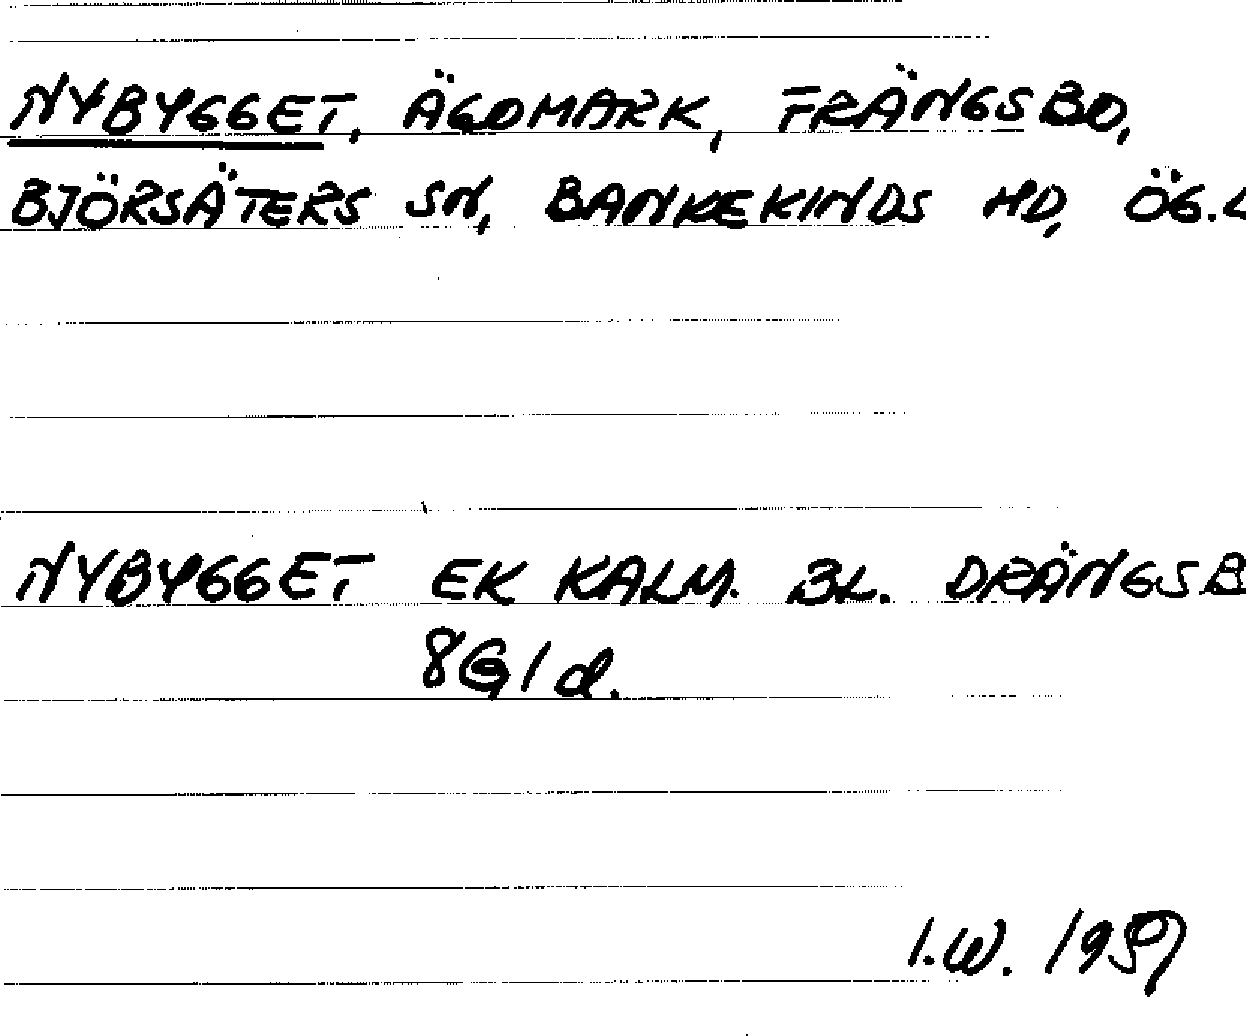 NYBYGGET, ÄGOMARK, FRÄNGSBO,
BJÖRSÄTERS SN, BANKEKINDS HD, ÖG.L
NYBYGGET EK KALM. BL. DRÄNGSB
8G1d.
I.W. 1959